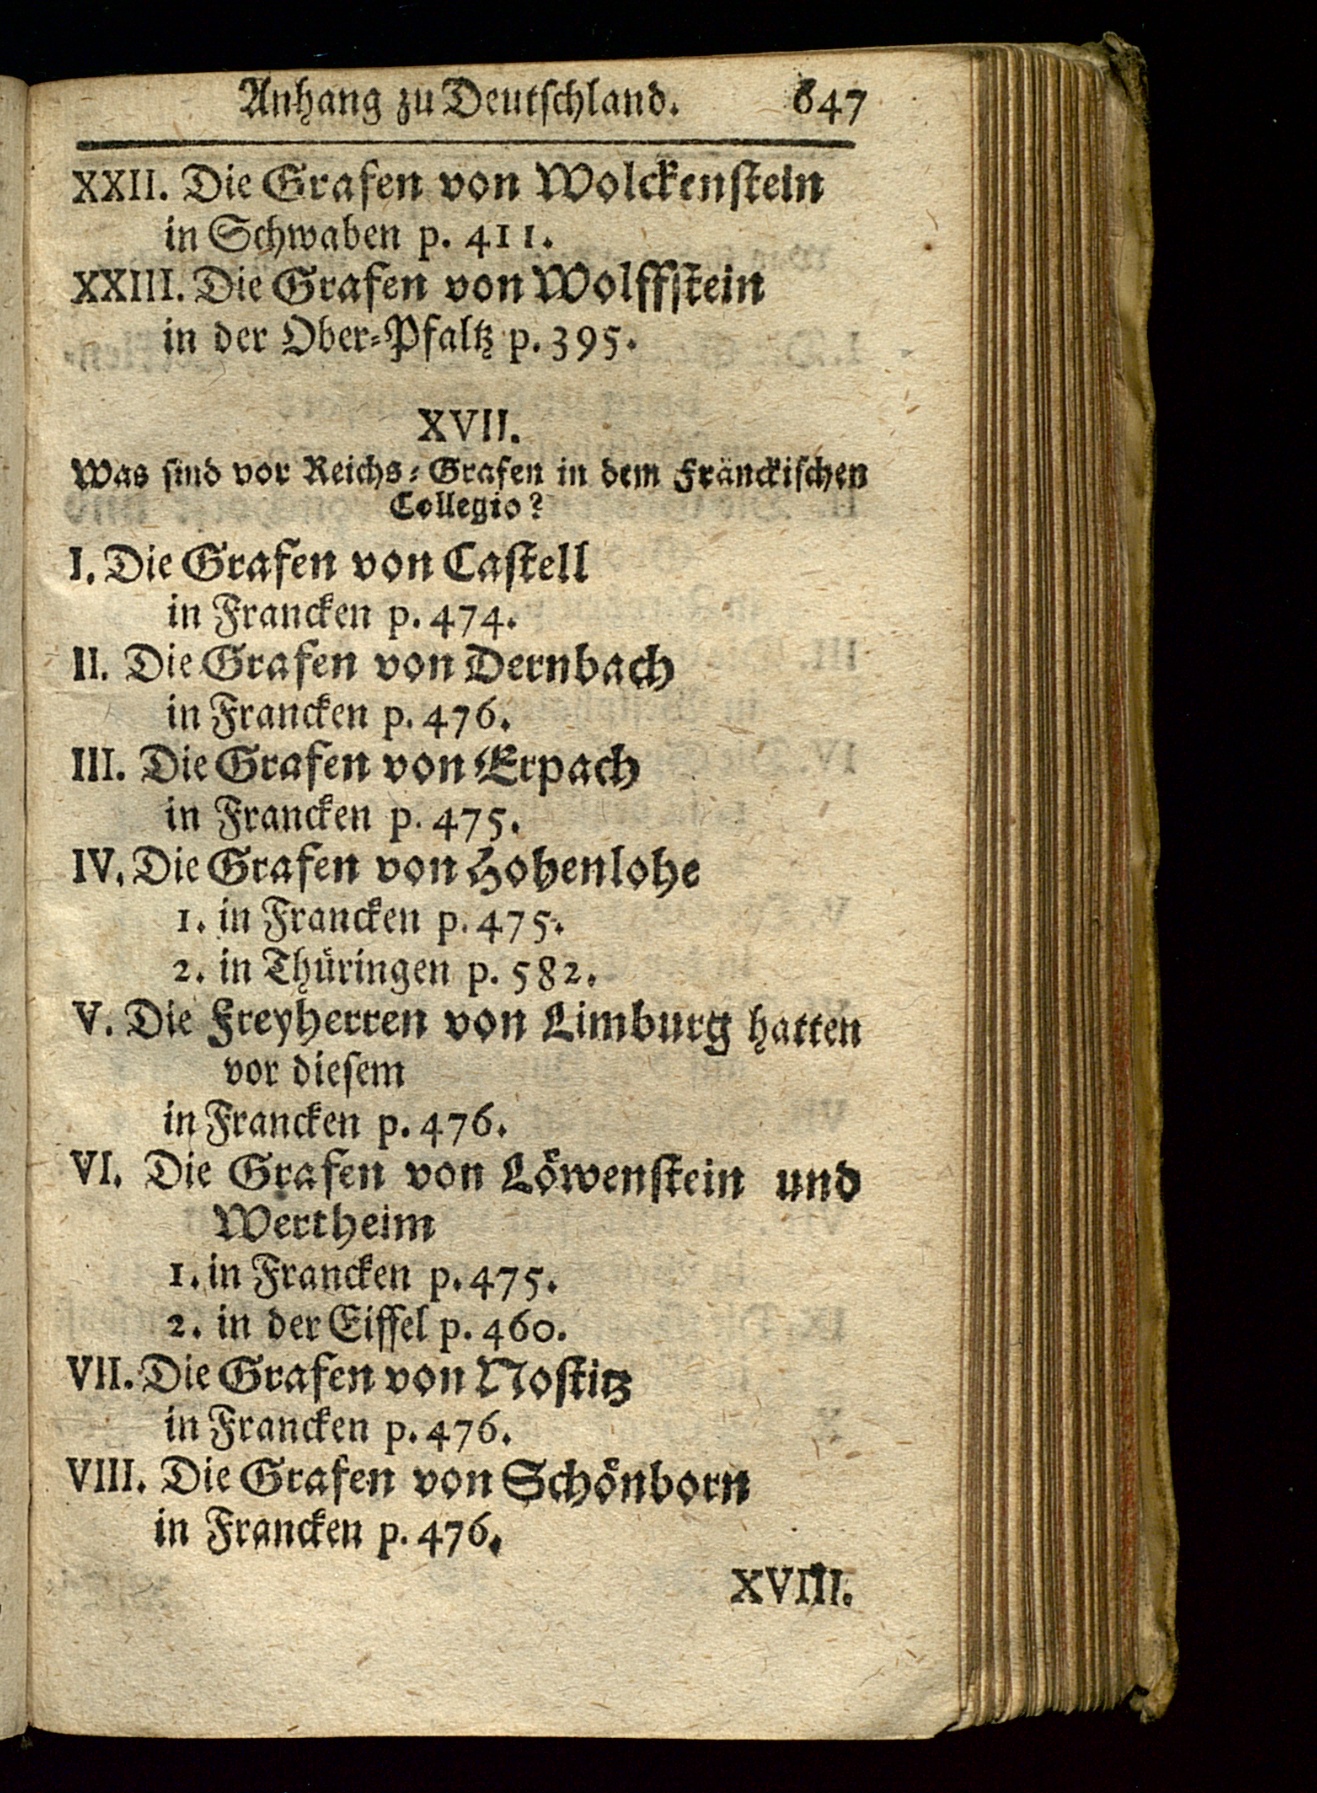 Anhang zu Deutschland. 647
XXII. Die Grafen von Wolckenstein
in Schwaben p. 411.
XXIII. Die Grafen von Wolffstein
in der Ober-Pfaltz p. 395.
XVII.
Was sind vor Reichs-Grafen in dem Fränckischen
Collegio?
I. Die Grafen von Castell
in Francken p. 474.
II. Die Grafen von Dernbach
in Francken p. 476.
III. Die Grafen von Erpach
in Francken p. 475.
IV. Die Grafen von Hohenlohe
1. in Francken p. 475.
2. in Thüringen p. 582.
V. Die Freyherren von Limburg hatten
vor diesem
in Francken p. 476.
VI. Die Grafen von Löwenstein und
Wertheim
1. in Francken p. 475.
2. in der Eiffel p. 460.
VII. Die Grafen von Nostitz
in Francken p. 476.
VIII. Die Grafen von Schönborn
in Francken p. 476.
XVIII.